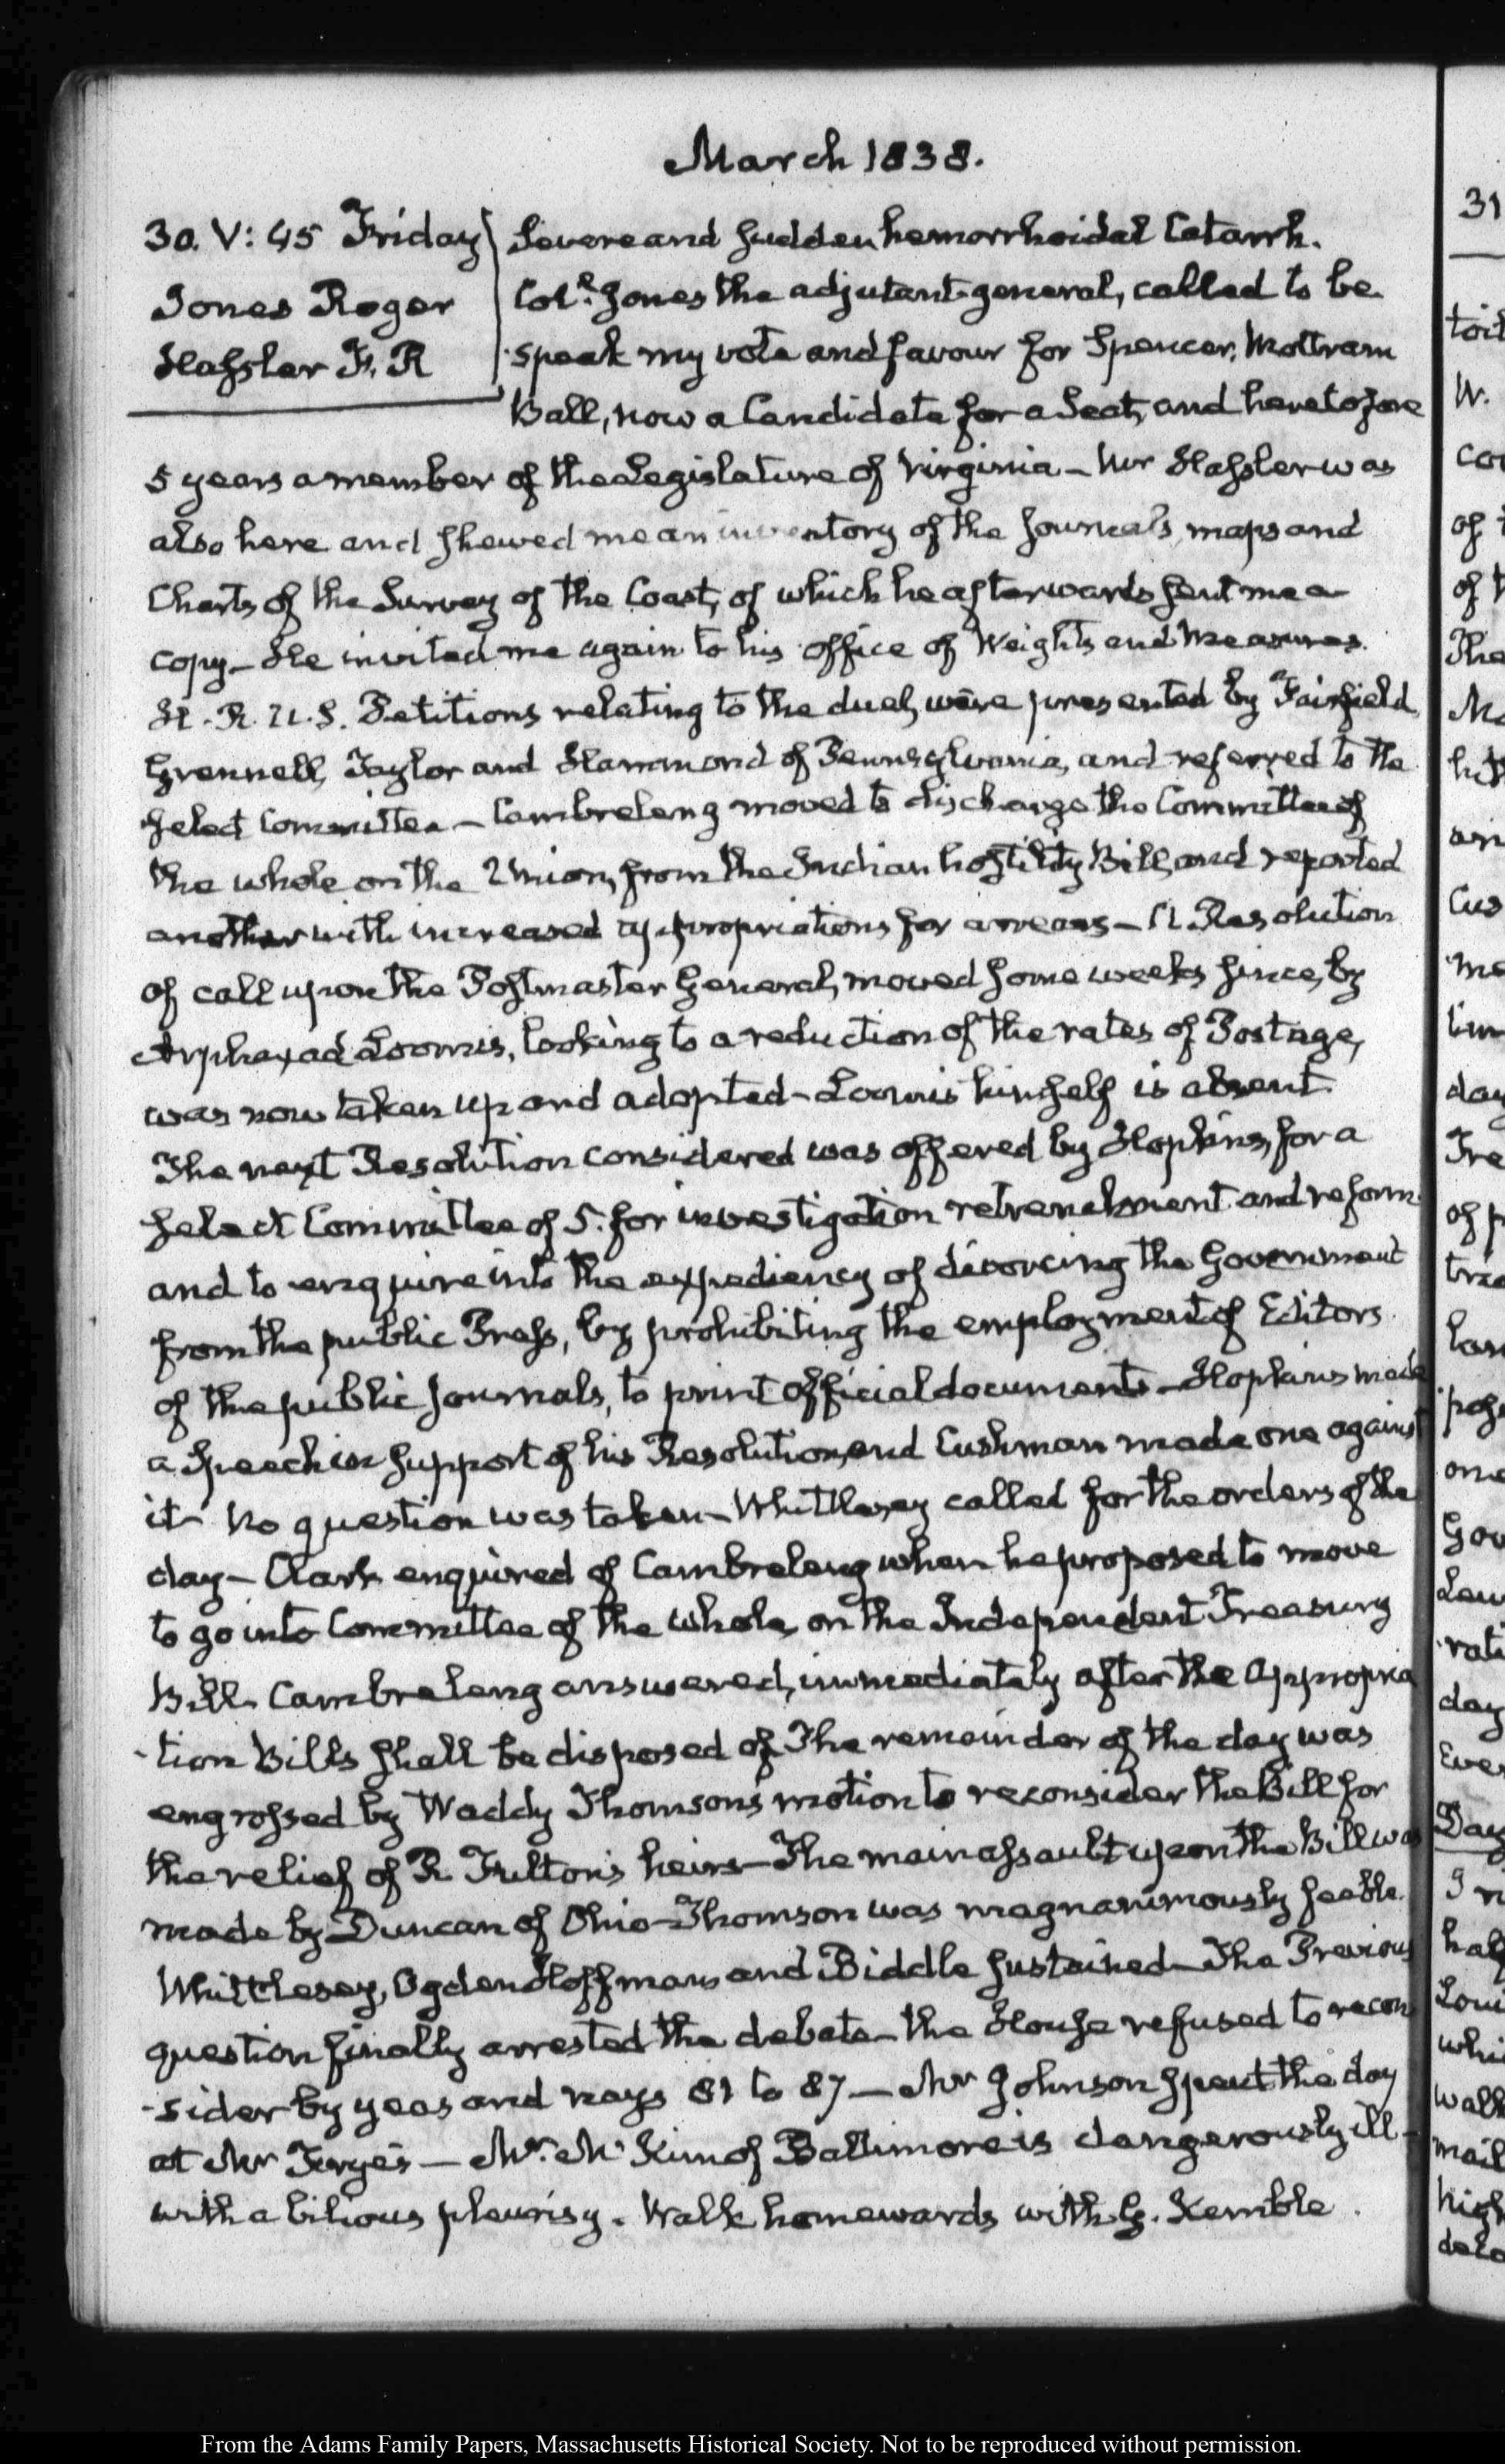 March 1838.
30. V: 45 Friday
Jones Roger
Hassler F. R
Severe and sudden hemorrhoidal Catarrh.
Coll. Jones the adjutant-general, called to be
speak my vote and favour for Spencer, Mottram
Ball, now a Candidate for a Seat, and heretofore
5 years a member of the Legislature of Virginia – Mr Hassler was
also here and shewed me an inventory of the journals, maps and
Charts of the Survey of the Coast, of which he afterwards sent me a
copy – He invited me again to his office of Weights and Measures.
H. R. U. S. Petitions relating to the duel, were presented by Fairfield,
Grennell, Taylor and Hammond of Pennsylvania, and referred to the
select Committee – Cambreleng moved to discharge the Committee of
the whole on the Union, from the Indian hostility Bill, and reported
another with increased appropriations for arrears – A Resolution
of call upon the Postmaster General, moved some weeks since, by
Arphaxad Loomis, looking to a reduction of the rates of Postage,
was now taken up and adopted – Loomis himself is absent.
The next Resolution considered was offered by Hopkins, for a
select Committee of 5. for investigation retrenchment and reform
and to enquire into the expediency of divorcing the Government
from the public Press, by prohibiting the employment of Editors
of the public journals, to print official documents – Hopkins made
a Speech in support of his Resolution, and Cushman made one against
it – No question was taken – Whittlesey called for the orders of the
day – Clark enquired of Cambreleng when he proposed to move
to go into Committee of the whole, on the Independent Treasury
Bill. Cambreleng answered, immediately after the Appropria
-tion Bills shall be disposed of. The remainder of the day was
engrossed by Waddy Thomson's motion to reconsider the Bill for
the relief of R. Fulton's heirs – The main assault upon the Bill was
made by Duncan of Ohio – Thomson was magnanimously feeble.
Whittlesey, Ogden Hoffman and Biddle sustained – The Previous
question finally arrested the debate – the House refused to recon
-sider by yeas and nays 81 to 87 – Mr Johnson spent the day
at Mr Frye's – Mr. McKim of Baltimore is dangerously ill –
with a bilious pleurisy. Walk homewards with G. Kemble.
31
From the Adams Family Papers, Massachusetts Historical Society. Not to be reproduced without permission.